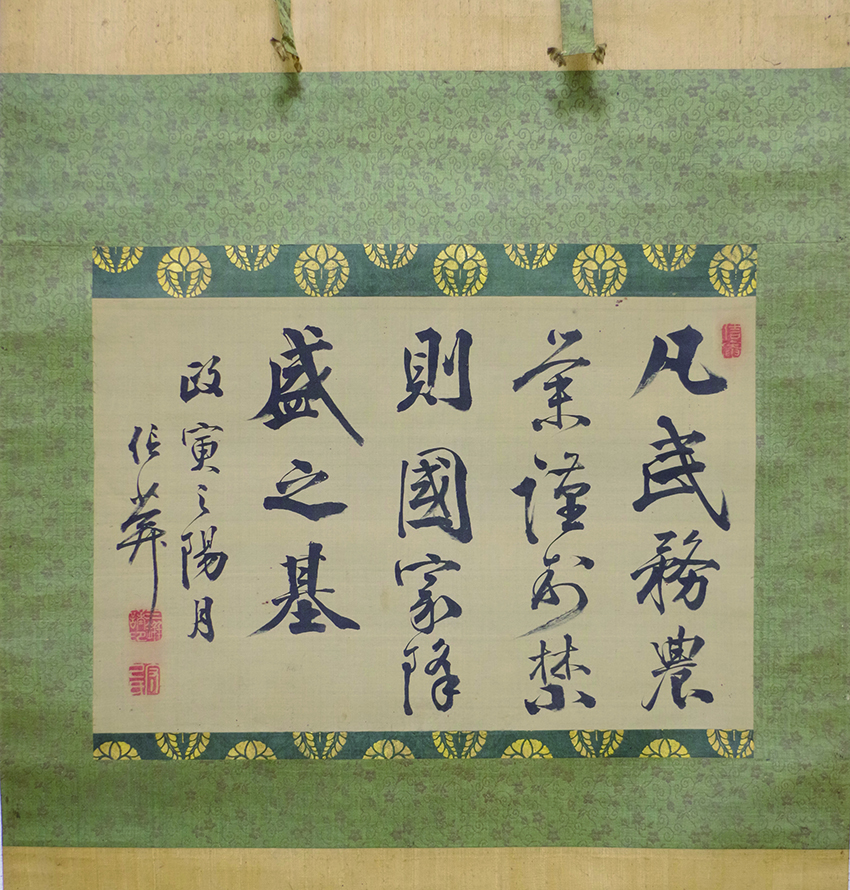 凡民務農
業謹禁
則國家隆
盛之基
政寅之陽月